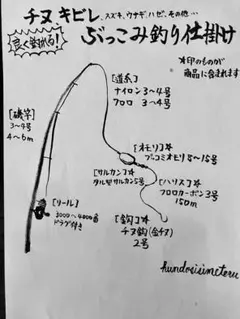 チヌ キビレ、スズキ、ウナギ、ハゼ、その他…
良く釣れる!
ぶっこみ釣り仕掛け
*印のものが
商品に含まれます
[道糸]
ナイロン 3〜4号
フロロ 3〜4号
[磯竿]
3〜4号
4〜5m
[オモリ]*
ブッコミオモリ 8〜15号
[サルカン]*
タル型サルカン5号
[ハリス]*
フロロカーボン3号
150m
[リール]
3000〜4000番
ドラグ付き
[鈎]*
チヌ鈎(金チヌ)
2号